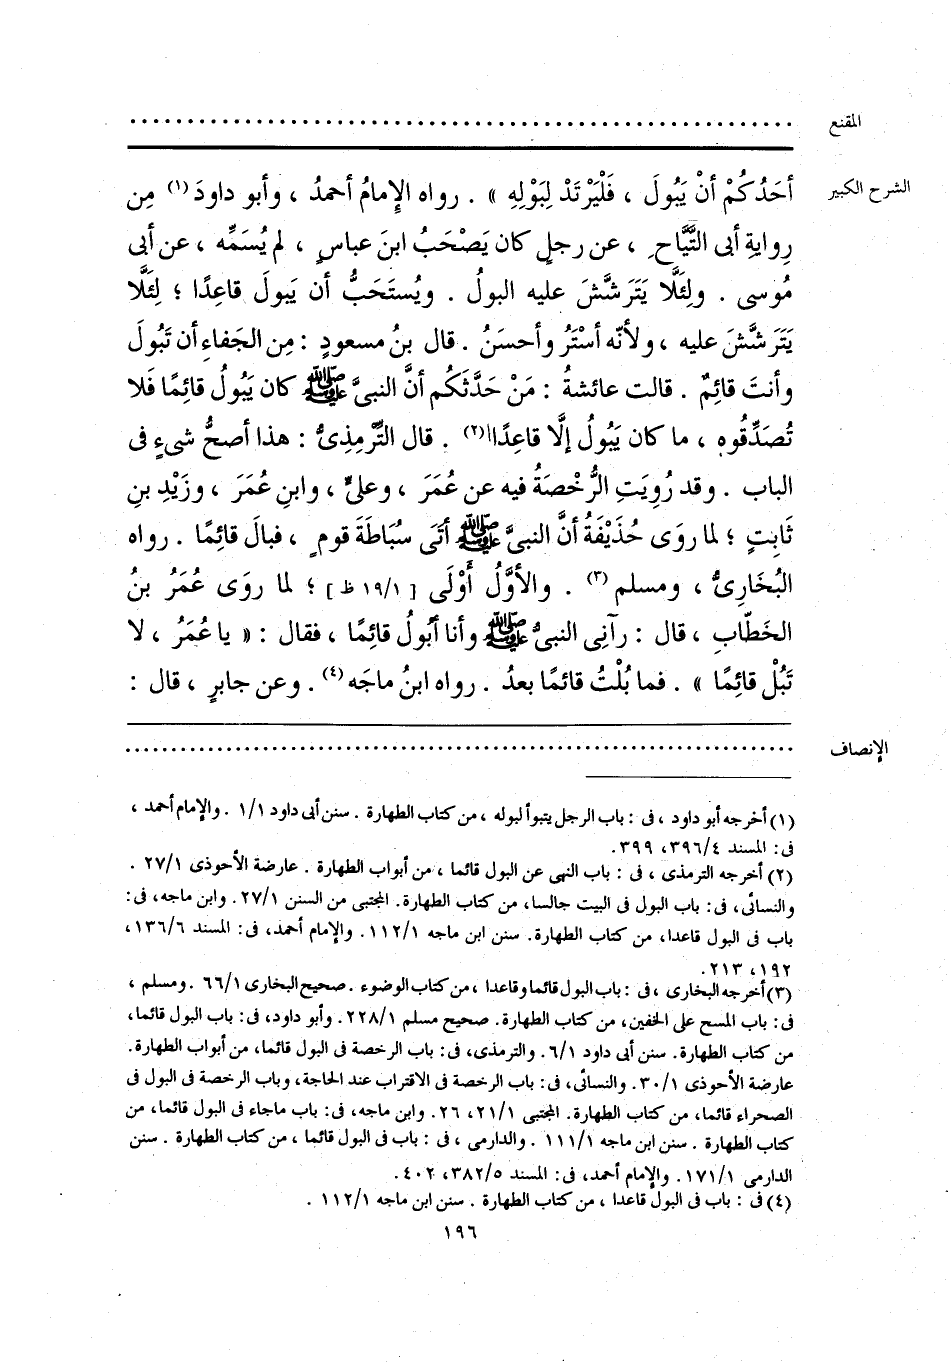 المقنع
الشرح الكبير
أحَدُكُمْ أنْ يَبُولَ ، فَلْيَرْتَدْ لِبَوْلِهِ » . رواه الإِمامُ أحمدُ ، وأبو داودَ (١) مِن
رِوايةِ أبى التَّيَّاحِ ، عن رجلٍ كان يَصْحَبُ ابنَ عباسٍ ، لم يُسَمِّه ، عن أبى
مُوسى . ولِئَلَّا يَتَرَشَّشَ عليه البولُ . ويُستَحَبُّ أن يَبولَ قاعِدًا ؛ لِئَلَّا
يَتَرَشَّشَ عليه ، ولأنّه أسْتَرُ وأحسَنُ . قال بنُ مسعودٍ : مِن الجَفاءِ أن تَبُولَ
وأنتَ قائِمٌ . قالت عائشةُ : مَنْ حَدَّثَكُم أنَّ النبىَّ ﷺ كان يَبُولُ قائِمًا فَلا
تُصَدِّقُوه ، ما كان يَبُولُ إلَّا قاعِدًا(٢) . قال التِّرْمِذِىُّ : هذا أصحُّ شىءٍ فى
الباب . وقد رُوِيَتِ الرُّخْصَةُ فيه عن عُمَرَ ، وعلىٍّ ، وابنِ عُمَرَ ، وزَيْدِ بنِ
ثَابِتٍ ؛ لما روَى حُذَيْفَةُ أنَّ النبىَّ ﷺ أتَى سُبَاطَةَ قومٍ ، فبالَ قائِمًا . رواه
البُخَارِىُّ ، ومسلم (٣) . والأوَّلُ أوْلَى [ ١٩/١ ظ ] ؛ لما روَى عُمَرُ بنُ
الخَطَّابِ ، قال : رآنِى النبىُّ ﷺ وأنا أَبُولُ قائِمًا ، فقال : « يا عُمَرُ ، لا
تَبُلْ قائِمًا » . فما بُلْتُ قائمًا بعدُ . رواه ابنُ ماجَه(٤) . وعن جابرٍ ، قال :
الإنصاف
(١) أخرجه أبو داود ، فى : باب الرجل يتبوأ لبوله ، من كتاب الطهارة . سنن أبى داود ١/١ . والإمام أحمد ،
فى : المسند ٣٩٦/٤، ٣٩٩ .
(٢) أخرجه الترمذى ، فى : باب النهى عن البول قائما ، من أبواب الطهارة . عارضة الأحوذى ٢٧/١ .
والنسائى، فى : باب البول فى البيت جالسا، من كتاب الطهارة. المجتبى من السنن ٢٧/١. وابن ماجه، فى:
باب فى البول قاعدا، من كتاب الطهارة. سنن ابن ماجه ١١٢/١. والإمام أحمد، فى: المسند ١٣٦/٦،
١٩٢، ٢١٣.
(٣) أخرجه البخارى ، فى : باب البول قائما وقاعدا ، من كتاب الوضوء . صحيح البخارى ٦٦/١ . ومسلم ،
فى: باب المسح على الخفين، من كتاب الطهارة. صحيح مسلم ٢٢٨/١. وأبو داود، فى: باب البول قائما،
من كتاب الطهارة. سنن أبى داود ٦/١. والترمذى، فى: باب الرخصة فى البول قائما، من أبواب الطهارة.
عارضة الأحوذى ٣٠/١. والنسائى، فى: باب الرخصة فى الاقتراب عند الحاجة، وباب الرخصة فى البول فى
الصحراء قائما، من كتاب الطهارة. المجتبى ٢١/١، ٢٦. وابن ماجه، فى: باب ماجاء فى البول قائما، من
كتاب الطهارة . سنن ابن ماجه ١١١/١ . والدارمى ، فى : باب فى البول قائما ، من كتاب الطهارة . سنن
الدارمى ١٧١/١. والإمام أحمد، فى: المسند ٣٨٢/٥، ٤٠٢.
(٤) فى : باب فى البول قاعدا ، من كتاب الطهارة . سنن ابن ماجه ١١٢/١ .
١٩٦